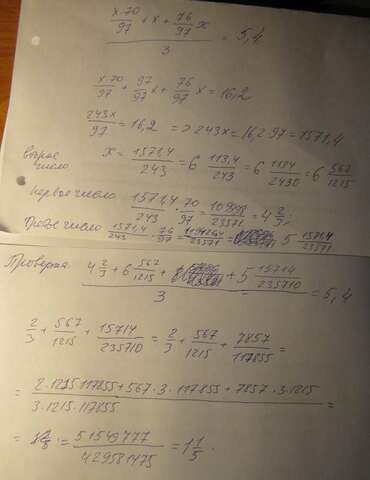 (x·70/97 + x + 76/97 x) / 3 = 5,4
x·70/97 + 97/97 x + 76/97 x = 16,2
243x/97 = 16,2 => 243x = 16,2·97 = 1571,4
второе число x = 1571,4/243 = 6 113,4/243 = 6 1134/2430 = 6 567/1215
первое число 1571,4/243 · 70/97 = /23571 = 4 2/3
число 1571,4/243 · 76/97 = /23571 = 5 15714/23571
Проверка (4 2/3 + 6 567/1215 + 5 15714/235710) / 3 = 5,4
2/3 + 567/1215 + 15714/235710 = 2/3 + 567/1215 + 7857/117855 =
= (2·1215·117855 + 567·3·117855 + 7857·3·1215) / (3·1215·117855) =
= 51549777/429581475 = 1 1/5